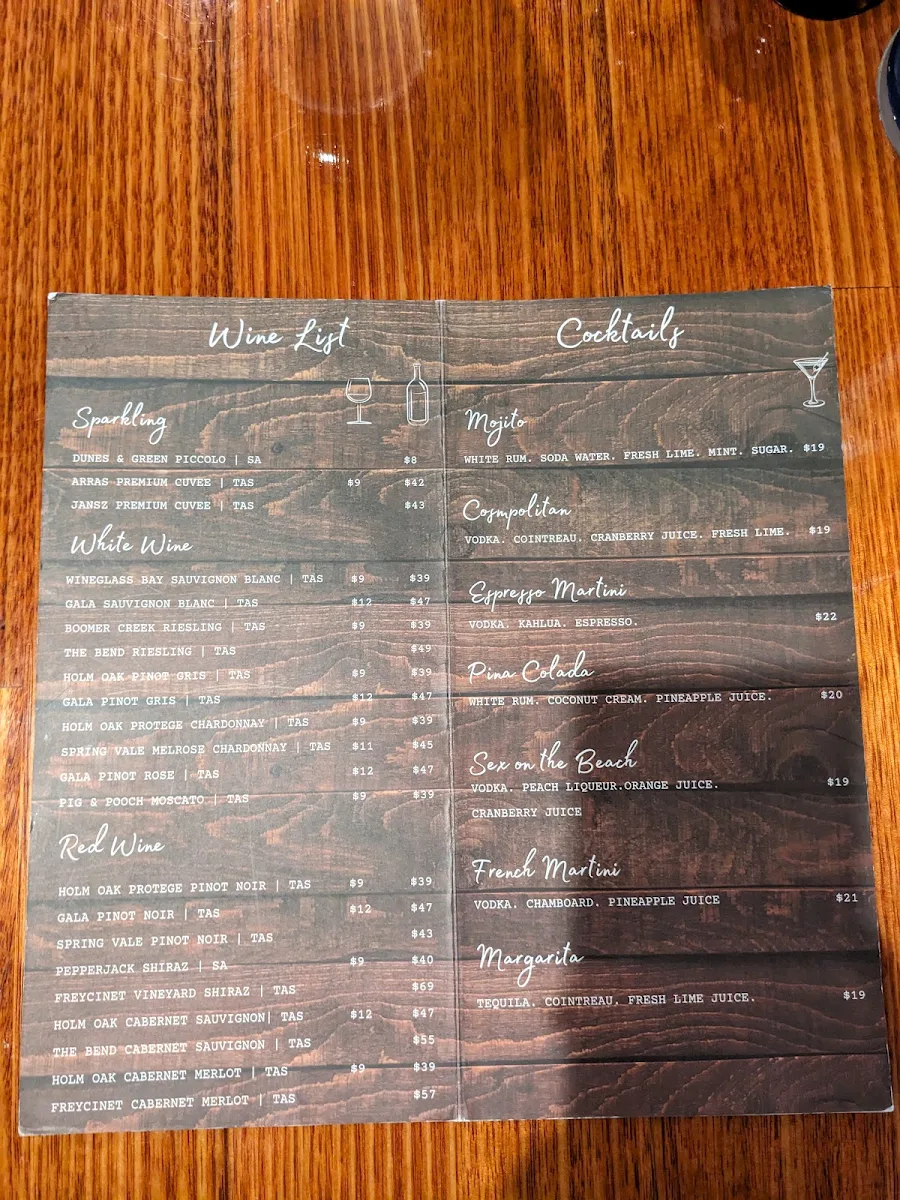 Wine List
Sparkling
DUNES & GREEN PICCOLO | SA $8
ARRAS PREMIUM CUVEE | TAS $9 $42
JANSZ PREMIUM CUVEE | TAS $43
White Wine
WINEGLASS BAY SAUVIGNON BLANC | TAS $9 $39
GALA SAUVIGNON BLANC | TAS $12 $47
BOOMER CREEK RIESLING | TAS $9 $39
THE BEND RIESLING | TAS $49
HOLM OAK PINOT GRIS | TAS $9 $39
GALA PINOT GRIS | TAS $12 $47
HOLM OAK PROTEGE CHARDONNAY | TAS $9 $39
SPRING VALE MELROSE CHARDONNAY | TAS $11 $45
GALA PINOT ROSE | TAS $12 $47
PIG & POOCH MOSCATO | TAS $9 $39
Red Wine
HOLM OAK PROTEGE PINOT NOIR | TAS $9 $39
GALA PINOT NOIR | TAS $12 $47
SPRING VALE PINOT NOIR | TAS $43
PEPPERJACK SHIRAZ | SA $9 $40
FREYCINET VINEYARD SHIRAZ | TAS $69
HOLM OAK CABERNET SAUVIGNON| TAS $12 $47
THE BEND CABERNET SAUVIGNON | TAS $55
HOLM OAK CABERNET MERLOT | TAS $9 $39
FREYCINET CABERNET MERLOT | TAS $57
Cocktails
Mojito
WHITE RUM. SODA WATER. FRESH LIME. MINT. SUGAR. $19
Cosmpolitan
VODKA. COINTREAU. CRANBERRY JUICE. FRESH LIME. $19
Espresso Martini
VODKA. KAHLUA. ESPRESSO. $22
Pina Colada
WHITE RUM. COCONUT CREAM. PINEAPPLE JUICE. $20
Sex on the Beach
VODKA. PEACH LIQUEUR.ORANGE JUICE. $19
CRANBERRY JUICE
French Martini
VODKA. CHAMBOARD. PINEAPPLE JUICE $21
Margarita
TEQUILA. COINTREAU. FRESH LIME JUICE. $19